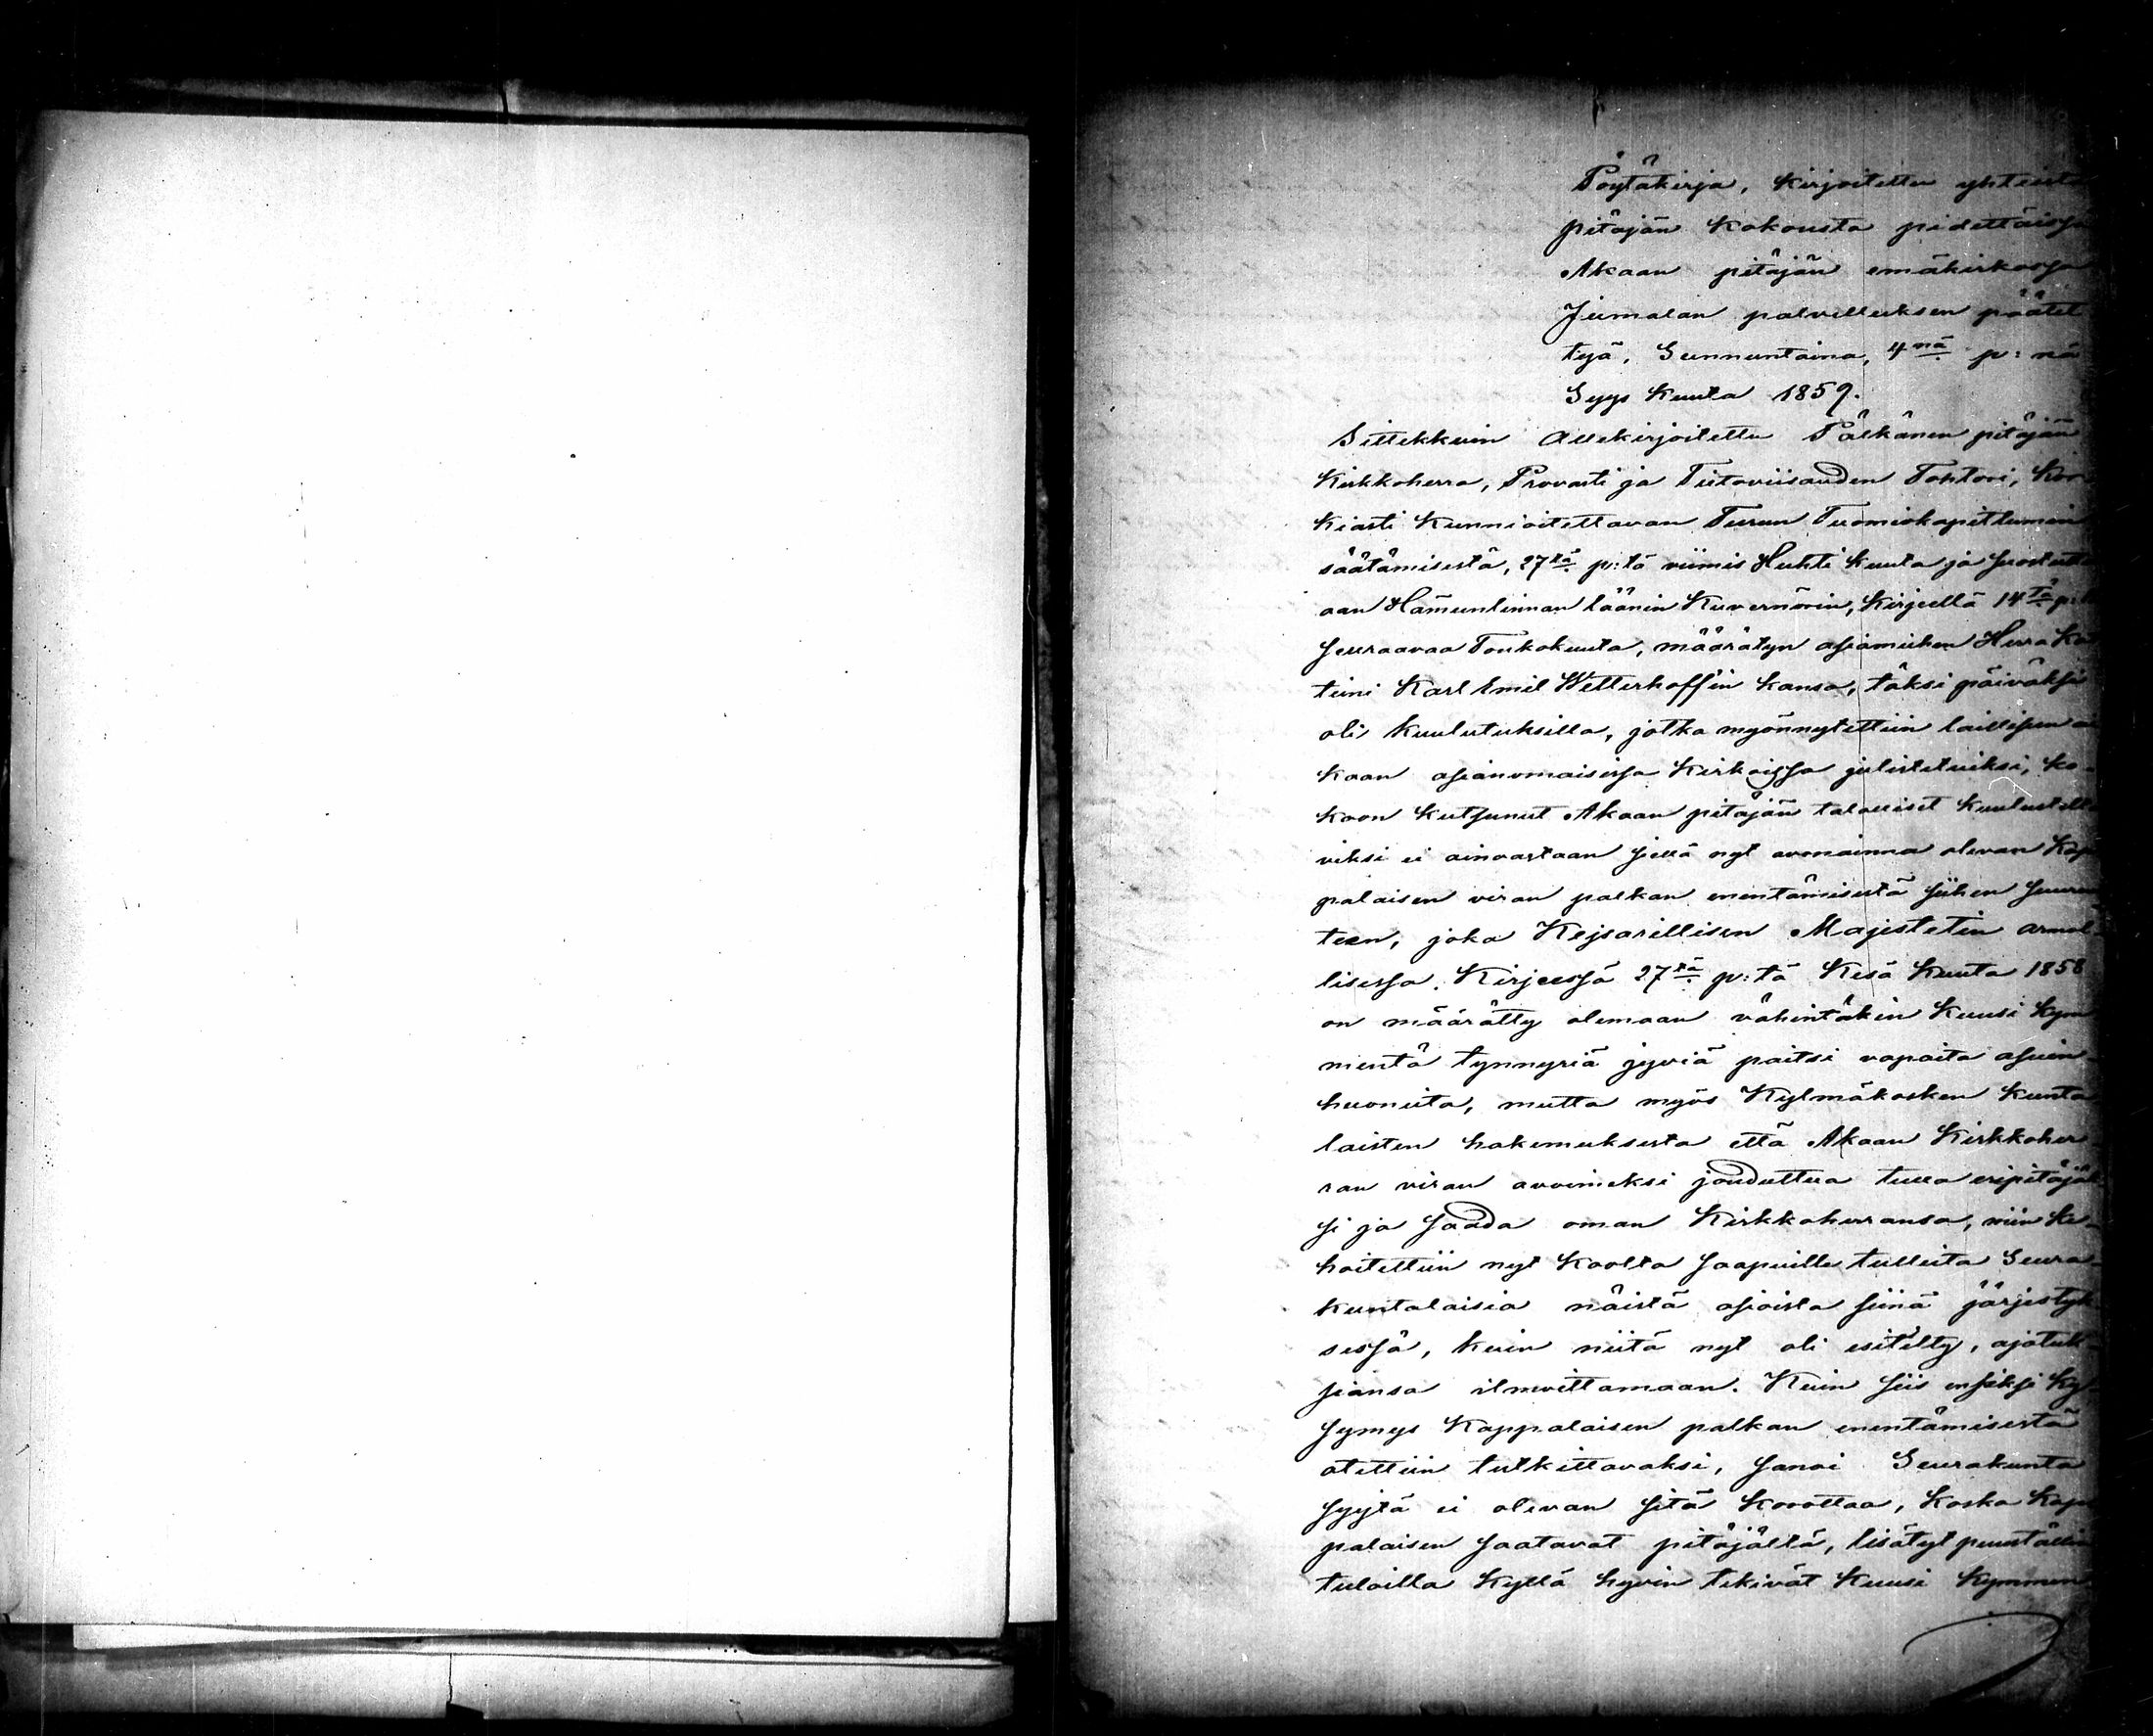 Pöytäkirja, kirjoitettu yhteistä
pitäjän kokousta pidettäissä
Akaan pitäjän emäkirkossa
Jumalan palvelluksen päätet
tyä, Sunnuntaina, 4nä p:nä
Syys kuuta 1859.
Sittekkuin allekirjoitettu Pälkänen pitäjän
Kirkkoherra, Provasti ja Tiitoviisauden Tohtori, Kor
kiasti kunnioitettavan Turun Tuomiokapittumin
säätämisestä, 27tä p:tä viimis Huhti kuuta ja
aan Hämeenlinnan läänin Kuvernörin, kirjeellä 14tä p:
seuraavaa Toukokuuta, määrätyn asiamiehen Herra Kap
teini Karl Emil Wetterhoff'in kansa, täksi päiväksi
oli kuulutuksilla, jotka myönnytettiin laillisen a
kaan asianomaisissa kirkoissa julistetuiksi, ko-
koon kutsunut Akaan pitäjän talolliset kuulustelta
viksi ei ainoastaan siellä nyt avoinainna olevan Kap
palaisen viran palkan enentämisestä siihen suuruu
teen, joka Kejsarillisen Majestetin armol-
lisessa Kirjeessä 27tä p:tä Kesä kuuta 1858
on määrätty olemaan vähintäkin kuusi kym
mentä tynnyriä jyviä paitsi vapaita asuin-
huoneita, mutta myös Kylmäkosken kunta
laisten hakemuksesta että Akaan Kirkkoher-
ran viran avoimeksi jouduttua tulla eripitäjäk-
si ja saada oman Kirkkoherransa, niin ke-
hoitettiin nyt koolta saapuille tulleita Seura-
kuntalaisia näistä asioista siinä järjestyk-
sessä, kuin niitä nyt oli esitelty, ajatuk-
siansa ilmoittamaan. Kuin siis ensiksi ky-
symys Kappalaisen palkan enentämisestä
otettiin tutkittavaksi, sanoi Seurakunta
syytä ei olevan sitä korottaa, koska Kap
palaisen saatavat pitäjältä, lisätyt puuställin
tuloilla kyllä hyvin tekivät kuusi kymmen